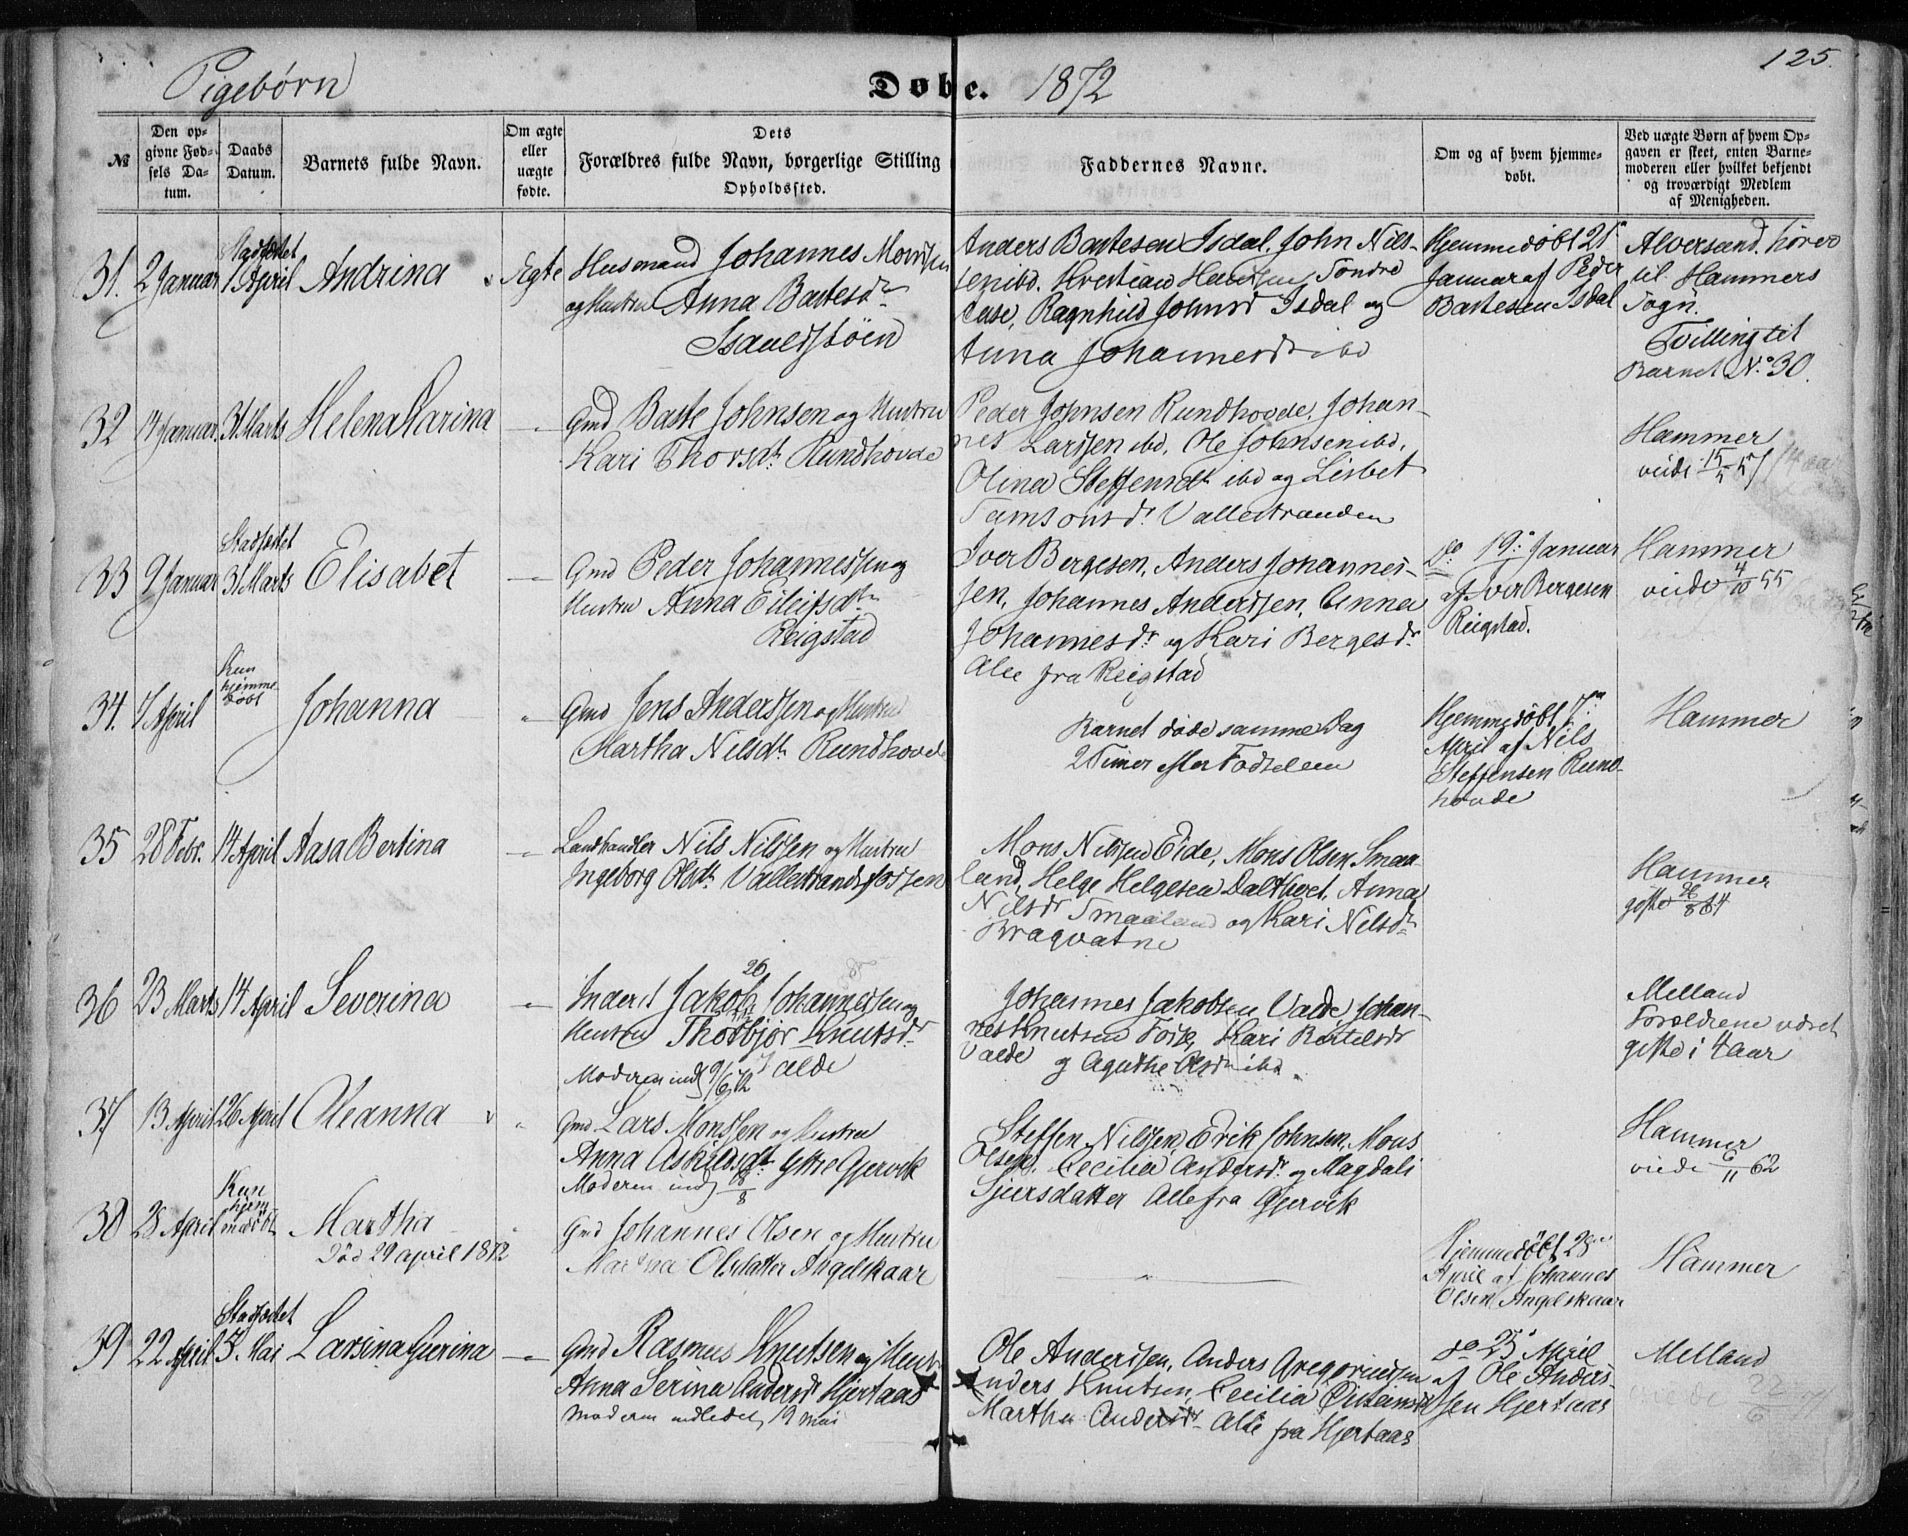 125.
Pigebørn
Døbe. 1872
№
Den op-
givne Fød-
sels Da-
tum.
Daabs
Datum.
Barnets fulde Navn.
Om ægte
eller
uægte
fødte.
Dets
Forældres fulde Navn, borgerlige Stilling
Opholdssted.
Faddernes Navne.
Om og af hvem hjemme-
døbt.
Ved uægte Børn af hvem Op-
gaven er skeet, enten Barne-
moderen eller hvilket bekjendt
og troværdigt Medlem
af Menigheden.
31. 2 Januar
Stadfæstet
1 April
Andrina
Ægte
Husmand Johannes Monsen
og Hustru Anna Bastesdr
Isdal
Anders Bastesen Isdal, John Nils-
sen ibd.
Ragnhild Johnsd Isdal og
Anna Johannesdr ibd
Hjemmedøbt 21
Januar af Peder
Bastesen Isdal
Alversund. hører
til Hammers
Sogn.
Tvilling til
Barnet No 30.
32 14 Januar 31 Marts Helena Karina
Gmd Baste Johnsen og Hustru
Kari Thorsdr Rundhovde
Peder Johnsen Rundhovde, Johan-
nes Larssen ibd, Ole Johnsen ibd,
Olina Steffensdr ibd og Lisbet
Samsonsdr Vallestranden
Hammer
viede 15/5 57
33 9 Januar
Stadfæstet
31 Marts
Elisabet
Gmd Peder Johannessen og
Hustru Anna Eilifsdtr
Reigstad
Iver Bergesen, Anders Johannes-
sen, Johannes Anderssen, Anna
Johannesdr og Kari Bergesdr
Alle fra Reigstad
Do 19. Januar
af Iver Bergesen
Reigstad.
Hammer
viede 4/10 55
34. 7 April
Kun
hjemme-
døbt
Johanna
Gmd Jens Anderssen og Hustru
Martha Nilsdr Rundhovde
Barnet døde samme Dag
2 Timer efter Fødselen
Hjemmedøbt 7
April af Nils
Steffensen Rund-
hovde
Hammer
35 28 Febr. 14 April Aasa Bertina
Landhandler Nils Nilssen og Hustru
Ingeborg Olsdr Vallestrandsfossen
Mons Nilssen Eide, Mons Olsen Smaa-
land, Helge Helgesen Dalthvet, Anna
Nilsdr Smaaland og Kari Nilsdr
Bragvatne
Hammer
gifte 26/8 64
36 23 Marts 14 April Severina
Inderst Jakob Johannessen og
26
Hustru Thorbjør Knutsdr
Valde
Moderen indl 9/6 72
Johannes Jakobsen Valde, Johan-
nes Knutsen Kari Bertelsdr
Valde og Agathe Olsdr ibd.
Melland
Forældrene været
gifte i 4 aar
37 13 April 26 April Oleanna
Gmd Lars Monssen og Hustru
Anna Askildsdtr Ytre Gjervik
Moderen indl
Steffen Nilssen, Erik Johnsen, Mons
Olsen, Cecilia Andersdr og Magdali
Sjursdatter Alle fra Gjervik
Hammer
viede 6/11 62
38 28 April
Kun
hjem-
medøbt
Martha
Død 29 april 1872
Gmd Johannes Olsen og Hustru
Martha Olsdatter Angelskaar
Hjemmedøbt 28
April af Johannes
Olsen Angelskaar
Hammer
39 22 April
Stadfæstet
5. Mai
Larsina Gurina
Gmd Rasmus Knutsen og Hustr
Anna Serina Andersdr Hjertaas
Moderen indledet 19 mai
Ole Anderssen, Anders Gregoriussen
Anders Knutsen, Cecilia
Martha Andersdr Alle fra Hjertaas
do 25 April
af Ole Anders-
sen Hjertaas
Melland